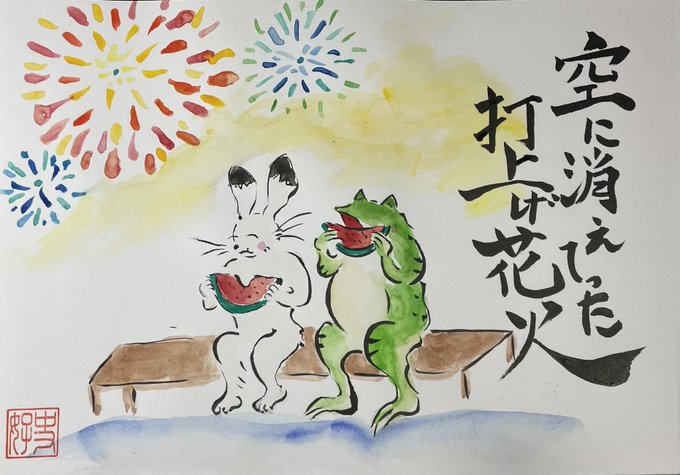 空に消えてった
打上げ花火